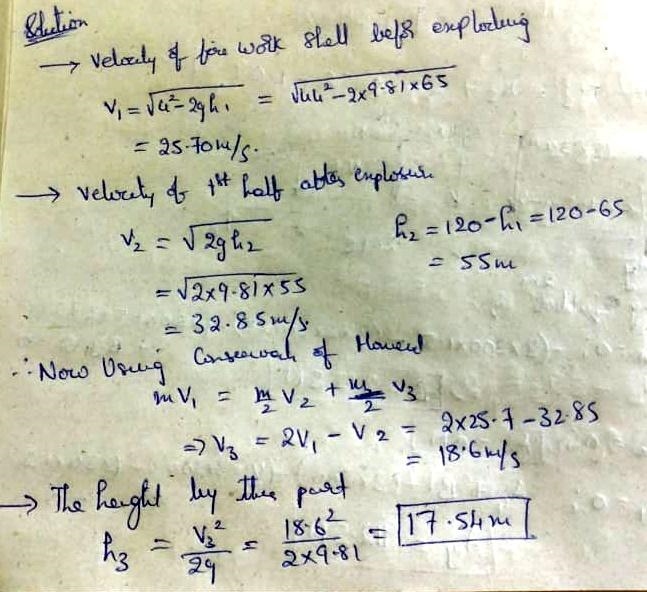 Solution
→ Velocity of fire work shell befr exploding
V₁ = √u²-2gh₁ = √44²-2×9.81×65
= 25.70m/s.
→ velocity of 1st half after explosion
V₂ = √2gh₂
h₂ = 120-h₁ = 120-65
= 55m
= √2×9.81×55
= 32.85m/s
∴ Now Using Conservah of Momend
mV₁ = m/2 V₂ + m/2 V₃
⇒ V₃ = 2V₁ - V₂ = 2×25.7-32.85
= 18.6m/s
→ The height by this part
h₃ = V₃²/2g = 18.6²/2×9.81 = 17.54m